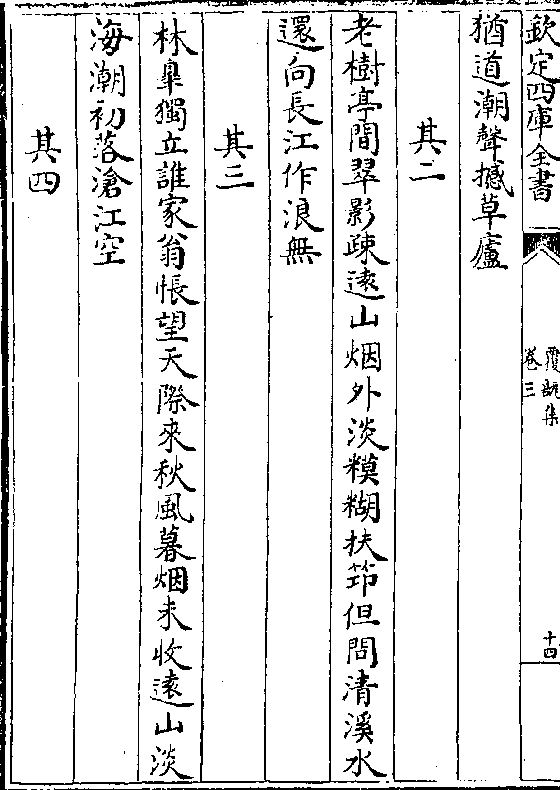 欽定四庫全書
覆瓿集
卷三
十四
猶道潮聲撼草廬
其二
老樹亭間翠影疎遠山烟外淡糢糊扶笻但問清溪水
還向長江作浪無
其三
林臯獨立誰家翁悵望天際來秋風暮烟未收遠山淡
海潮初落滄江空
其四